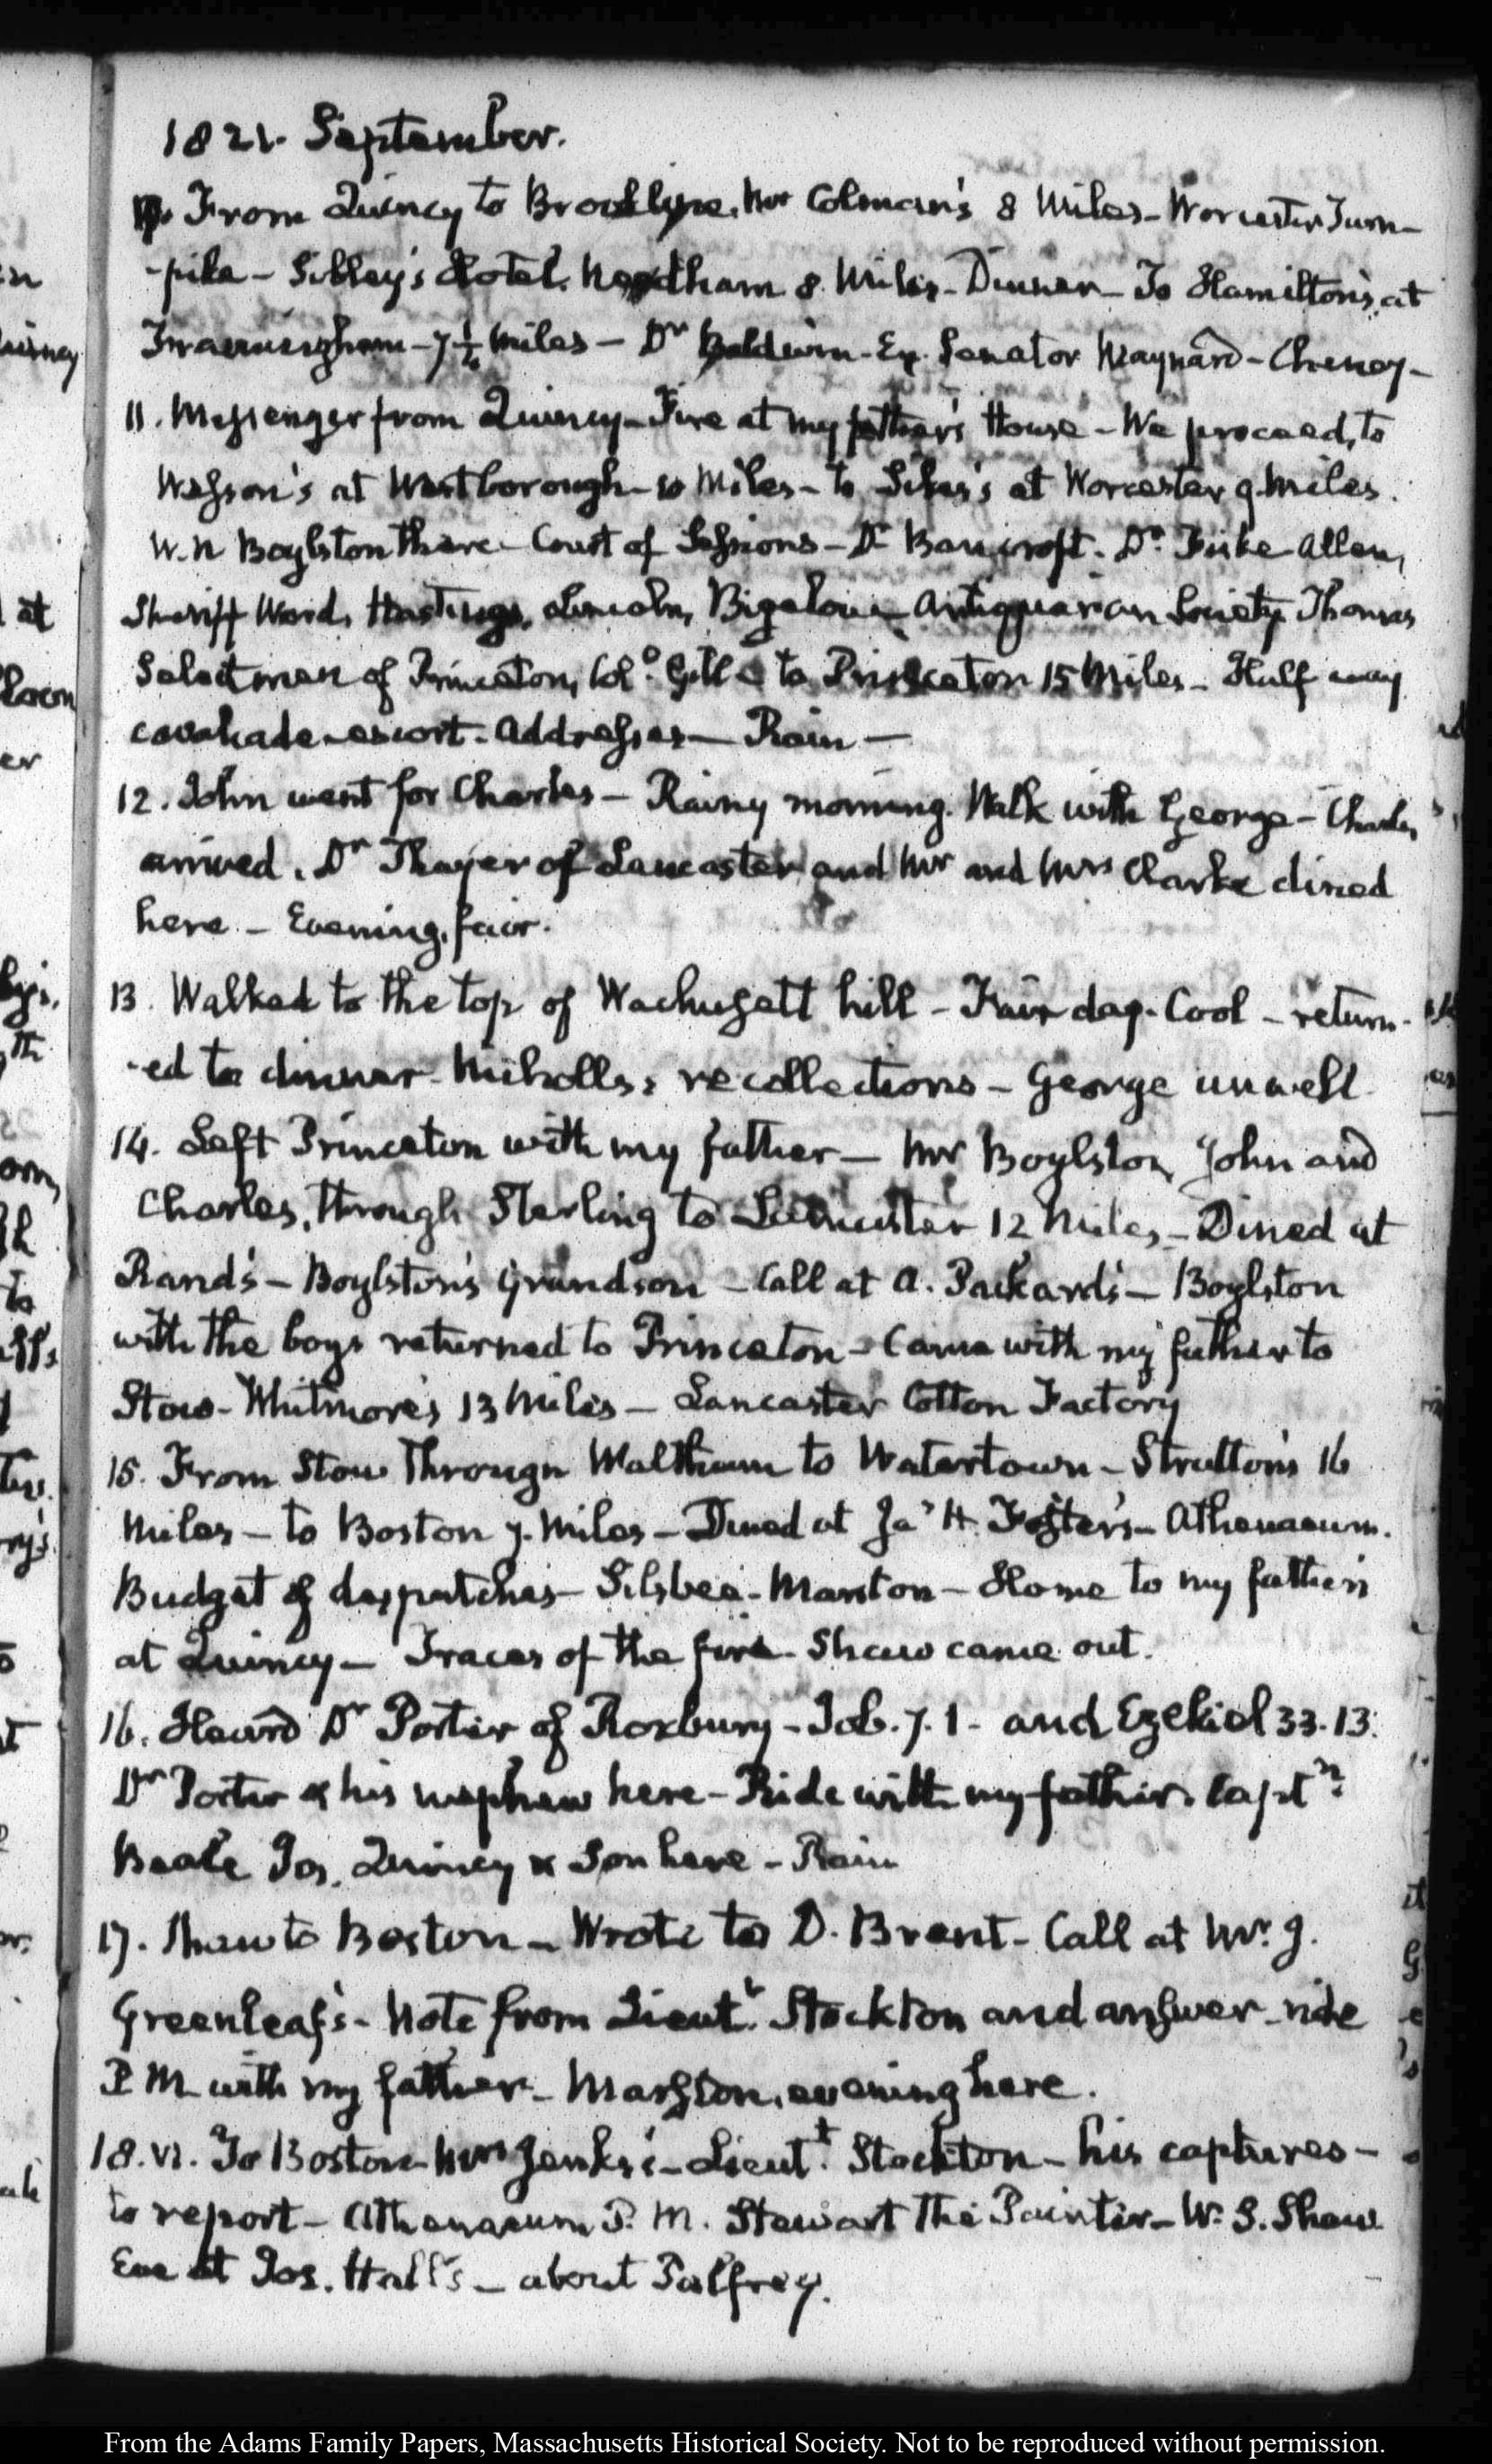 1821. September.
10. From Quincy to Brooklyne. Mr Colman's 8 Miles - Worcester Turn-
-pike - Sibley's Hotel. Needham 8. Miles - Dinner - To Hamilton's at
Framingham - 7½ Miles - Dr Baldwin - Ex. Senator Maynard - Cheney -
11. Messenger from Quincy - Fire at my father's House - We proceed, to
Wesson's at Westborough - 10 Miles - to Sikes's at Worcester 9. Miles.
W. N Boylston there - Court of Sessions - Dr Bancroft. Dr. Fiske Allen,
Sheriff Ward, Hastings, Lincoln, Bigelow - Antiquarian Society Thomas
Selectmen of Princeton, Col.o Gill - to Princeton 15 Miles - Half way
cavalcade - escort - Addresses - Rain -
12. John went for Charles - Rainy morning. Walk with George - Charles
arrived. Dr Thayer of Lancaster and Mr and Mrs Clarke dined
here - Evening, fair.
13. Walked to the top of Wachusett hill - Fair day. Cool - return-
-ed to dinner - recollections - George unwell
14. Left Princeton with my father - Mr Boylston John and
Charles, through Sterling to 12 Miles - Dined at
Rand's - Boylston's Grandson - Call at A. Packard's - Boylston
with the boys returned to Princeton - Came with my father to
Stow - Whitmore's 13 Miles - Lancaster Cotton Factory
15. From Stow Through Waltham to Watertown - Stratton's 16
Miles - to Boston 7. Miles - Dined at Jas H. Foster's - Athenaeum.
Budget of despatches - Silsbee - Marston - Home to my father's
at Quincy - Traces of the fire. Shaw came out.
16. Heard Dr Porter of Roxbury - Job. 7. 1 - and Ezekiel 33. 13.
Dr Porter & his nephew here - Ride with my father. Captn.
Beale Jos. Quincy & Son here - Rain
17. Shaw to Boston - Wrote to D. Brent - Call at Mr. J.
Greenleaf's - Note from Lieutt. Stockton and answer - ride
P M with my father - Marston, evening here.
18. VI. To Boston - Mrs Jenks's - Lieutt. Stockton - his captures -
to report - Athenaeum P. M. Stewart the Painter - W. S. Shaw
Eve at Jos. Hall's - about Palfrey.
From the Adams Family Papers, Massachusetts Historical Society. Not to be reproduced without permission.